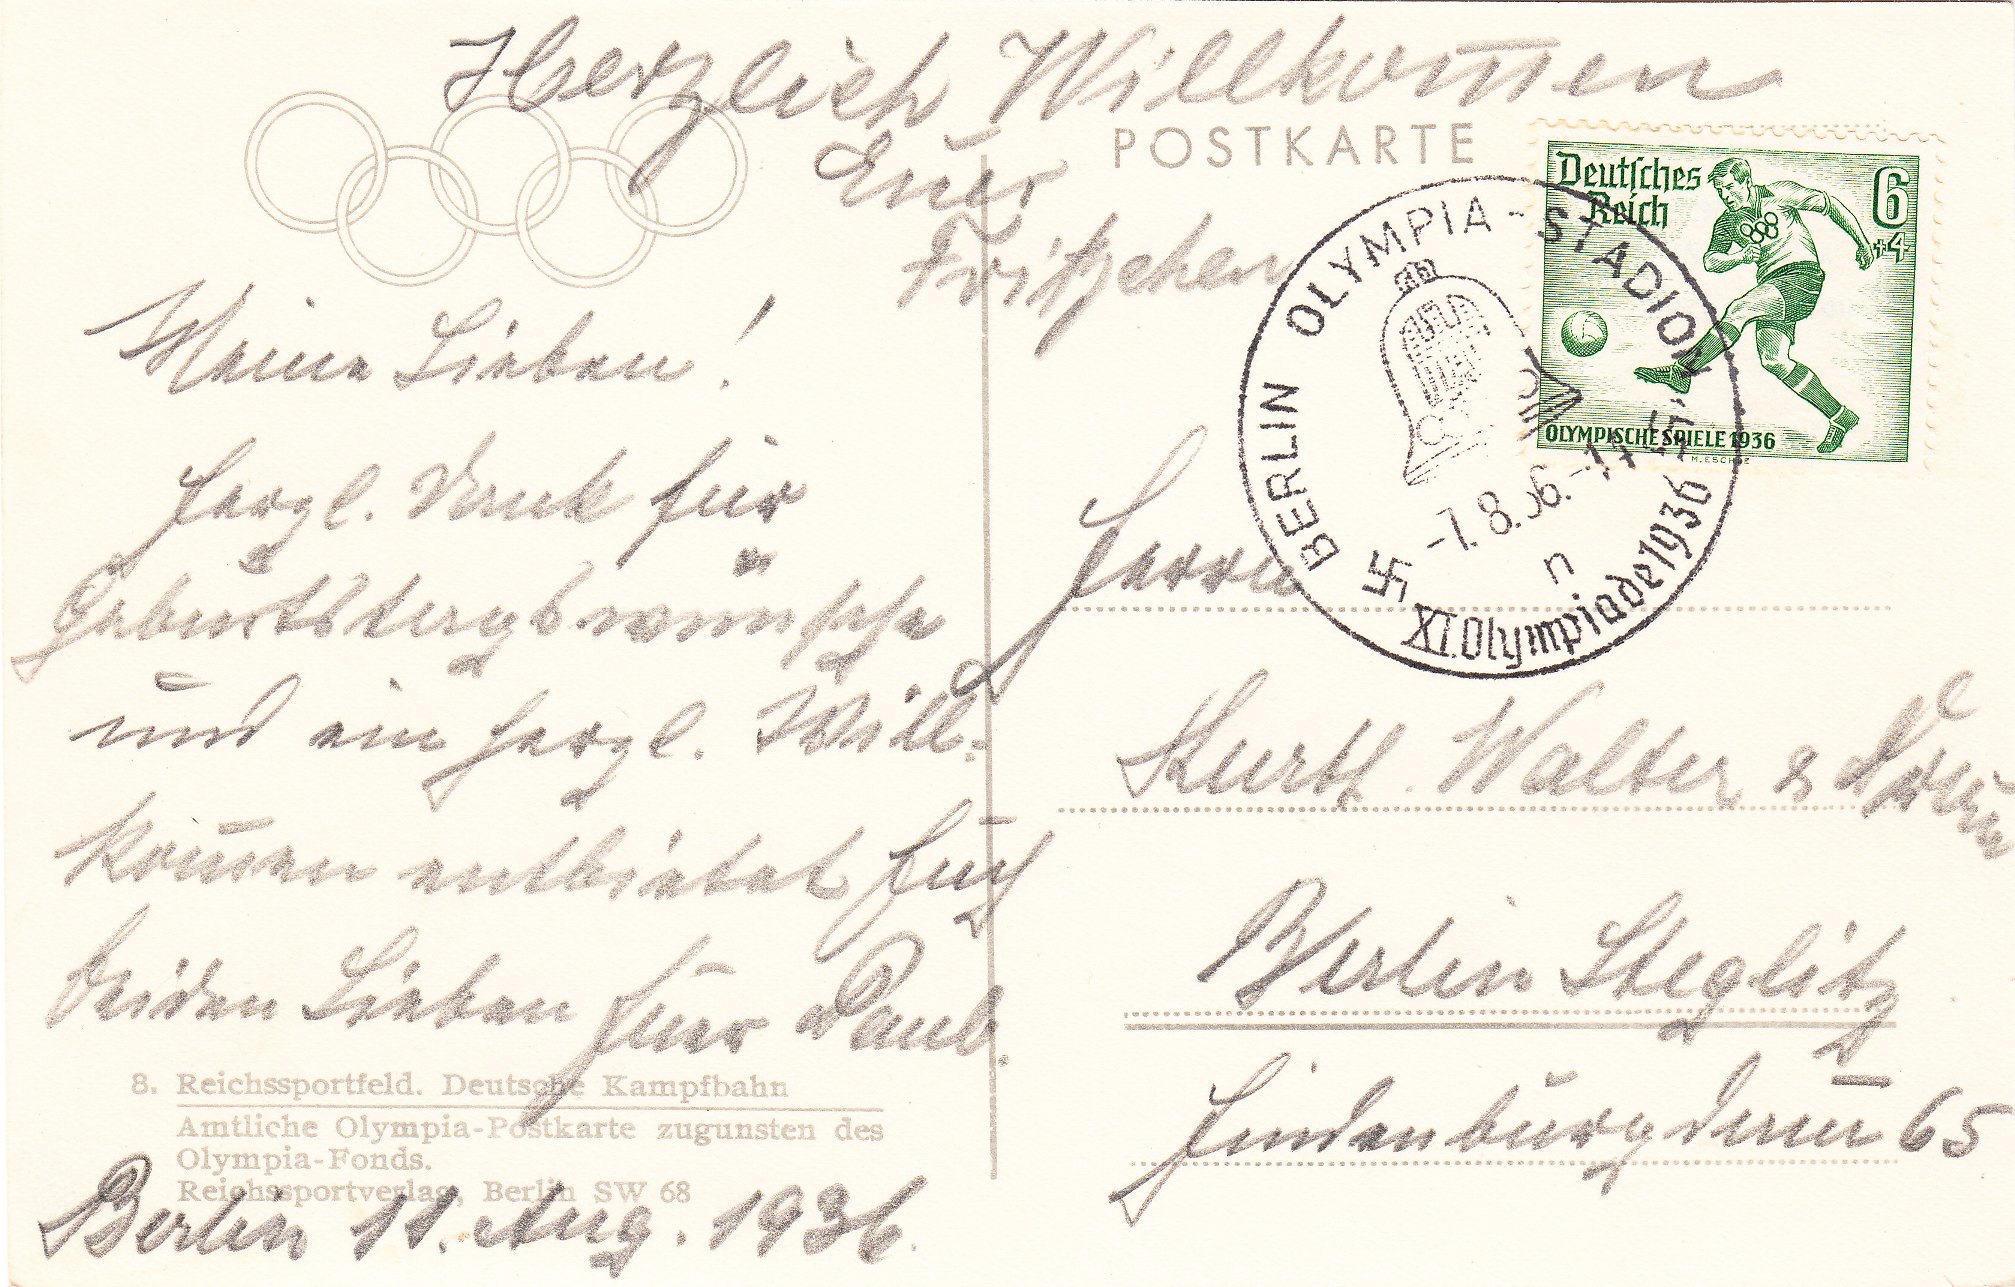 Herzlich Willkom̅en
Euer
Fritzchen
POSTKARTE
Deutsches
Reich
6
+4
OLYMPISCHE SPIELE 1936
BERLIN OLYMPIA-STADION
-7.8.36.-
n
XI. Olympiade 1936
Meine Lieben!
Herzl. Dank für
Geburtstagswünsche
und ein herzl. Will-
kom̅en entbietet Euch
beiden Lieben Euer
Herrn
Kurth Walter & Frau
Berlin Steglitz
Hindenburgdamm 65
8. Reichssportfeld. Deutsche Kampfbahn
Amtliche Olympia-Postkarte zugunsten des
Olympia-Fonds.
Reichssportverlag, Berlin SW 68
Berlin 11. Aug. 1936.